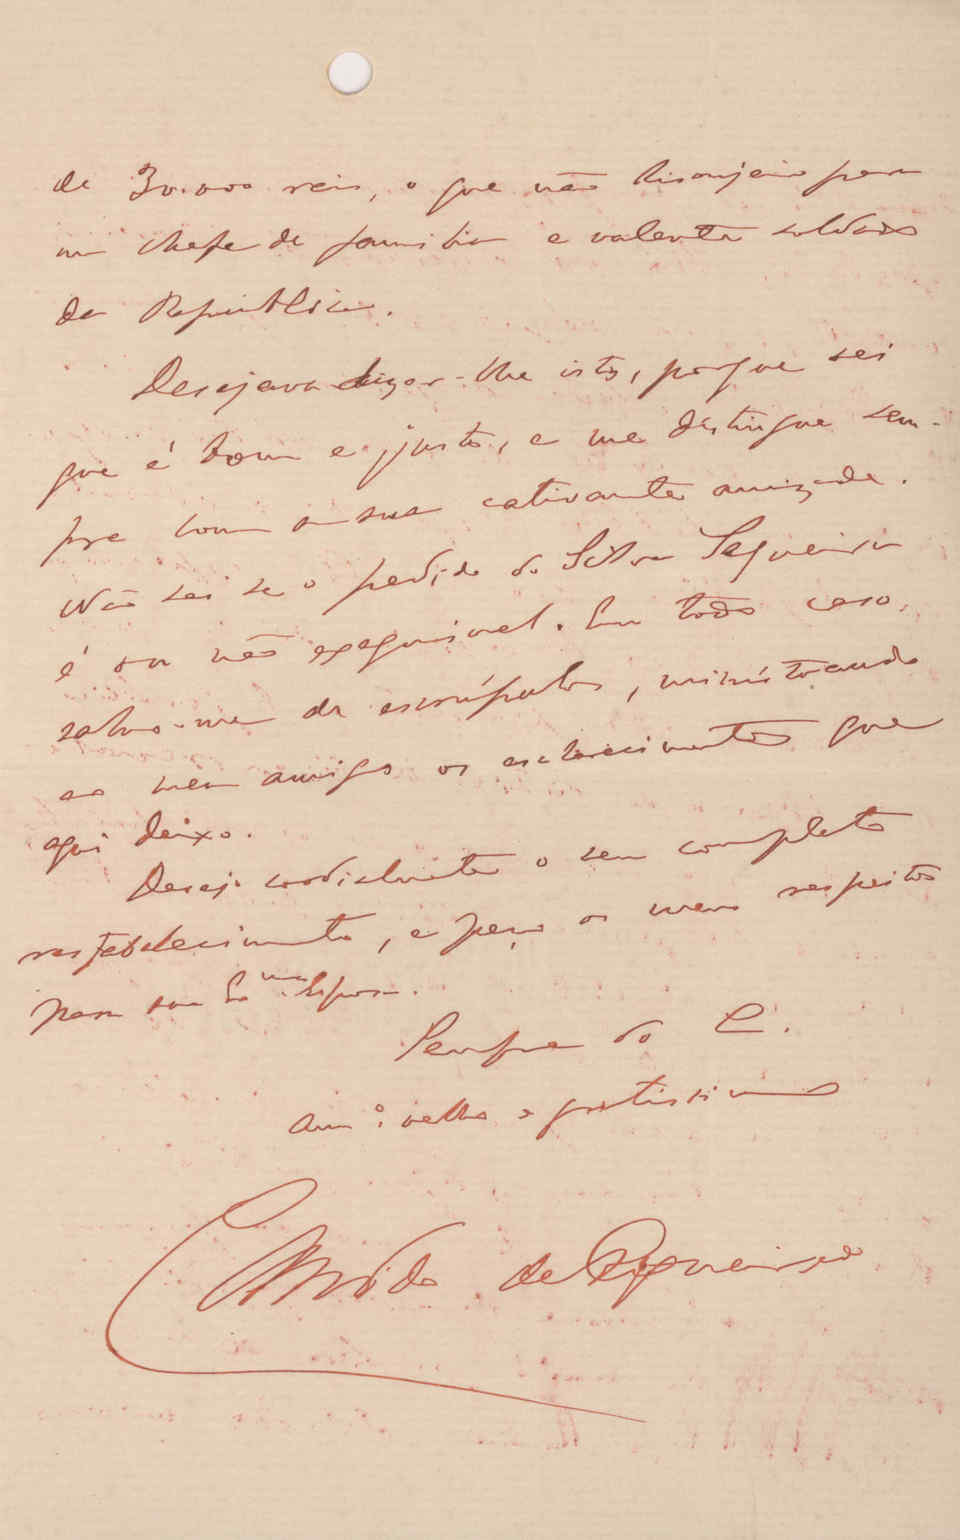 de 30.000 reis, o que não lisonjeiro para
um chefe de familia e valente soldado
da Republica.
Desejava dizer-lhe isto, porque sei
que é bom e justo, e me distingue sem-
pre com a sua cativante amizade.
Não sei se o pedido do Silva Sequeira
é ou não exequivel. Em todo caso,
salvo-me de escrúpulos, ministrando
ao meu amigo os esclarecimentos que
aqui deixo.
Desejo cordialmente o seu completo
restabelecimento, e peço os meus respeitos
para sua Ex.ma Esposa.
Sempre do C.
Am.º velho e gratissimo
de Figueiredo